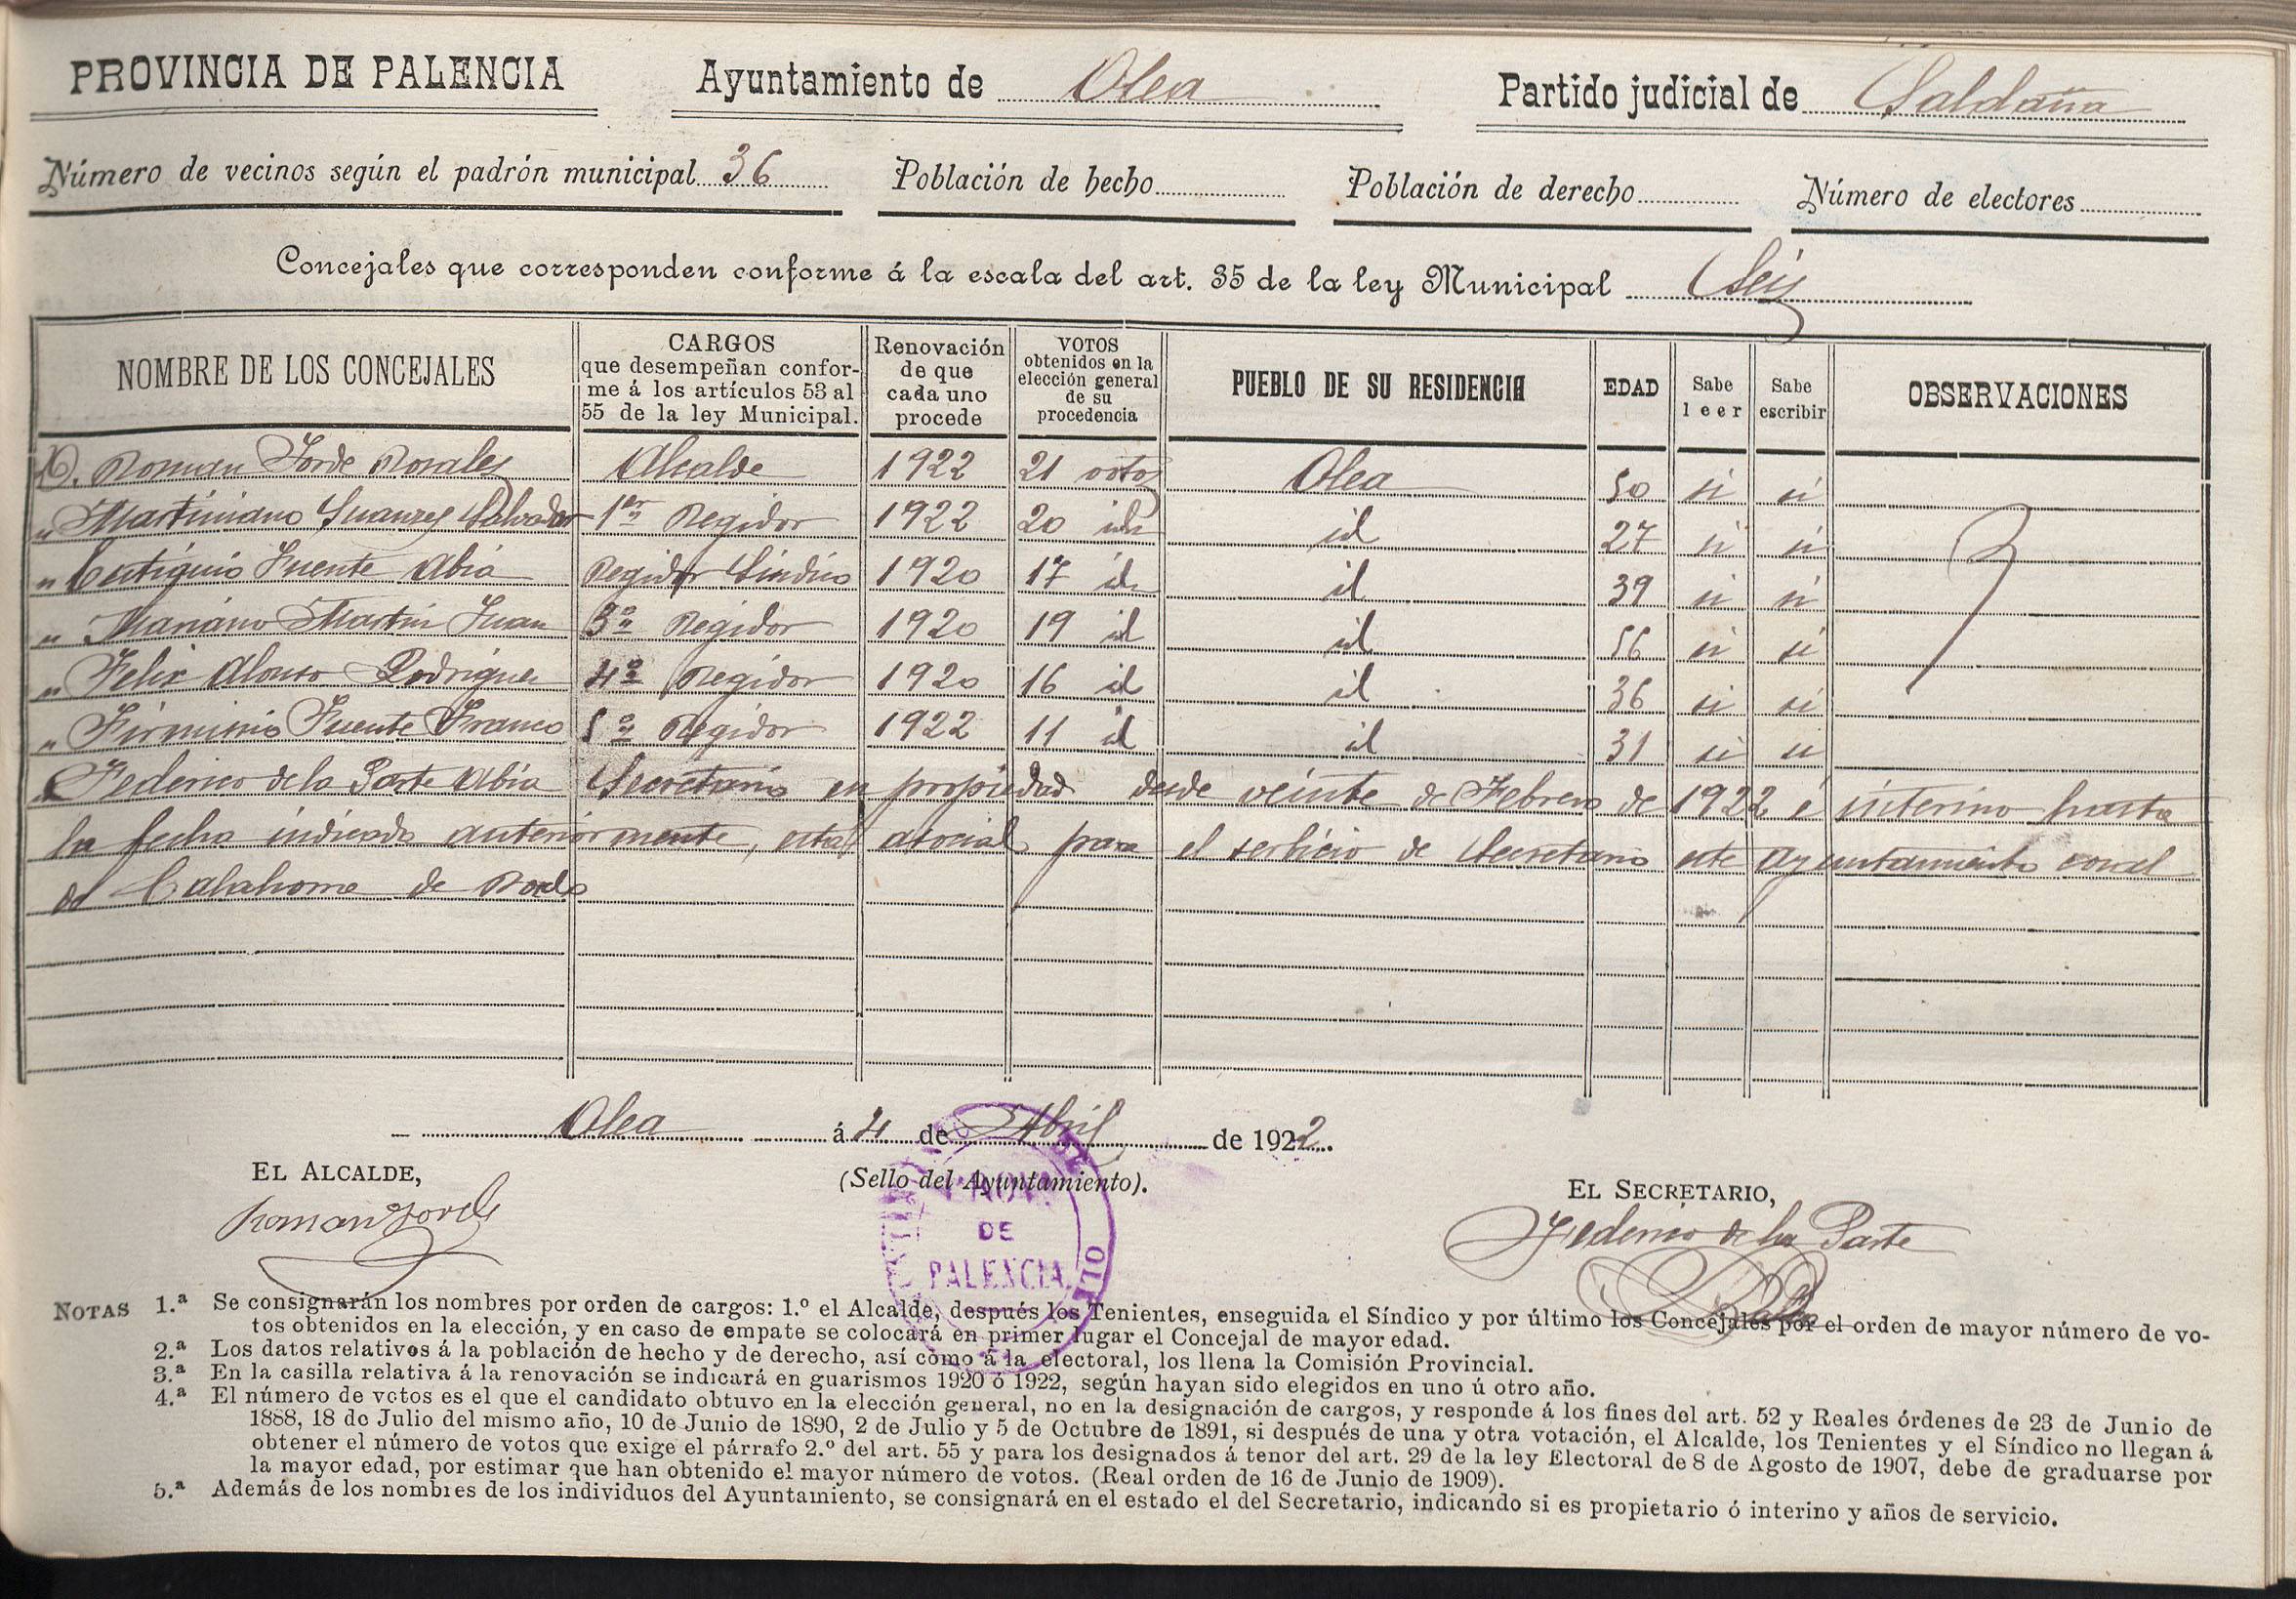 PROVINCIA DE PALENCIA Ayuntamiento de Olea Partido judicial de Saldaña
Número de vecinos según el padrón municipal 36 Población de hecho Población de derecho Número de electores
Concejales que corresponden conforme á la escala del art. 35 de la ley Municipal Seis
NOMBRE DE LOS CONCEJALES
CARGOS
que desempeñan confor-
me á los artículos 53 al
55 de la ley Municipal.
Renovación
de que
cada uno
procede
VOTOS
obtenidos en la
elección general
de su
procedencia
PUEBLO DE SU RESIDENCIA
EDAD
Sabe
leer
Sabe
escribir
OBSERVACIONES
D. Roman Jorde Rosales Alcalde 1922 21 votos Olea 50 si si
" Martiniano Suanzes Salvador 1er Regidor 1922 20 id id 27 si si
" Eutiquio Fuente Abia Regidor Sindico 1920 17 id id 39 si si
" Mariano Martin Juan 3º Regidor 1920 19 id id 56 si si
" Felix Alonso Rodriguez 4º Regidor 1920 16 id id 36 si si
" Firminio Fuente Franco 5º Regidor 1922 11 id id 31 si si
" Federico de la Parte Abia Secretario en propiedad desde veinte de Febrero de 1922 é interino hasta
la fecha indicada anteriormente, esta asociad para el serbicio de Secretario este Ayuntamiento con el
de Calahorra de Boedo
Olea á 4 de Abril de 1922.
EL ALCALDE,
Roman Jorde
(Sello del Ayuntamiento).
PROVA
DE
PALENCIA
DE OLEA
EL SECRETARIO,
Federico de la Parte
NOTAS 1.ª Se consignarán los nombres por orden de cargos: 1.º el Alcalde, después los Tenientes, enseguida el Síndico y por último los Concejales por el orden de mayor número de vo-
tos obtenidos en la elección, y en caso de empate se colocará en primer lugar el Concejal de mayor edad.
2.ª Los datos relativos á la población de hecho y de derecho, así como á la electoral, los llena la Comisión Provincial.
3.ª En la casilla relativa á la renovación se indicará en guarismos 1920 ó 1922, según hayan sido elegidos en uno ú otro año.
4.ª El número de votos es el que el candidato obtuvo en la elección general, no en la designación de cargos, y responde á los fines del art. 52 y Reales órdenes de 23 de Junio de
1888, 18 de Julio del mismo año, 10 de Junio de 1890, 2 de Julio y 5 de Octubre de 1891, si después de una y otra votación, el Alcalde, los Tenientes y el Síndico no llegan á
obtener el número de votos que exige el párrafo 2.º del art. 55 y para los designados á tenor del art. 29 de la ley Electoral de 8 de Agosto de 1907, debe de graduarse por
la mayor edad, por estimar que han obtenido el mayor número de votos. (Real orden de 16 de Junio de 1909).
5.ª Además de los nombres de los individuos del Ayuntamiento, se consignará en el estado el del Secretario, indicando si es propietario ó interino y años de servicio.